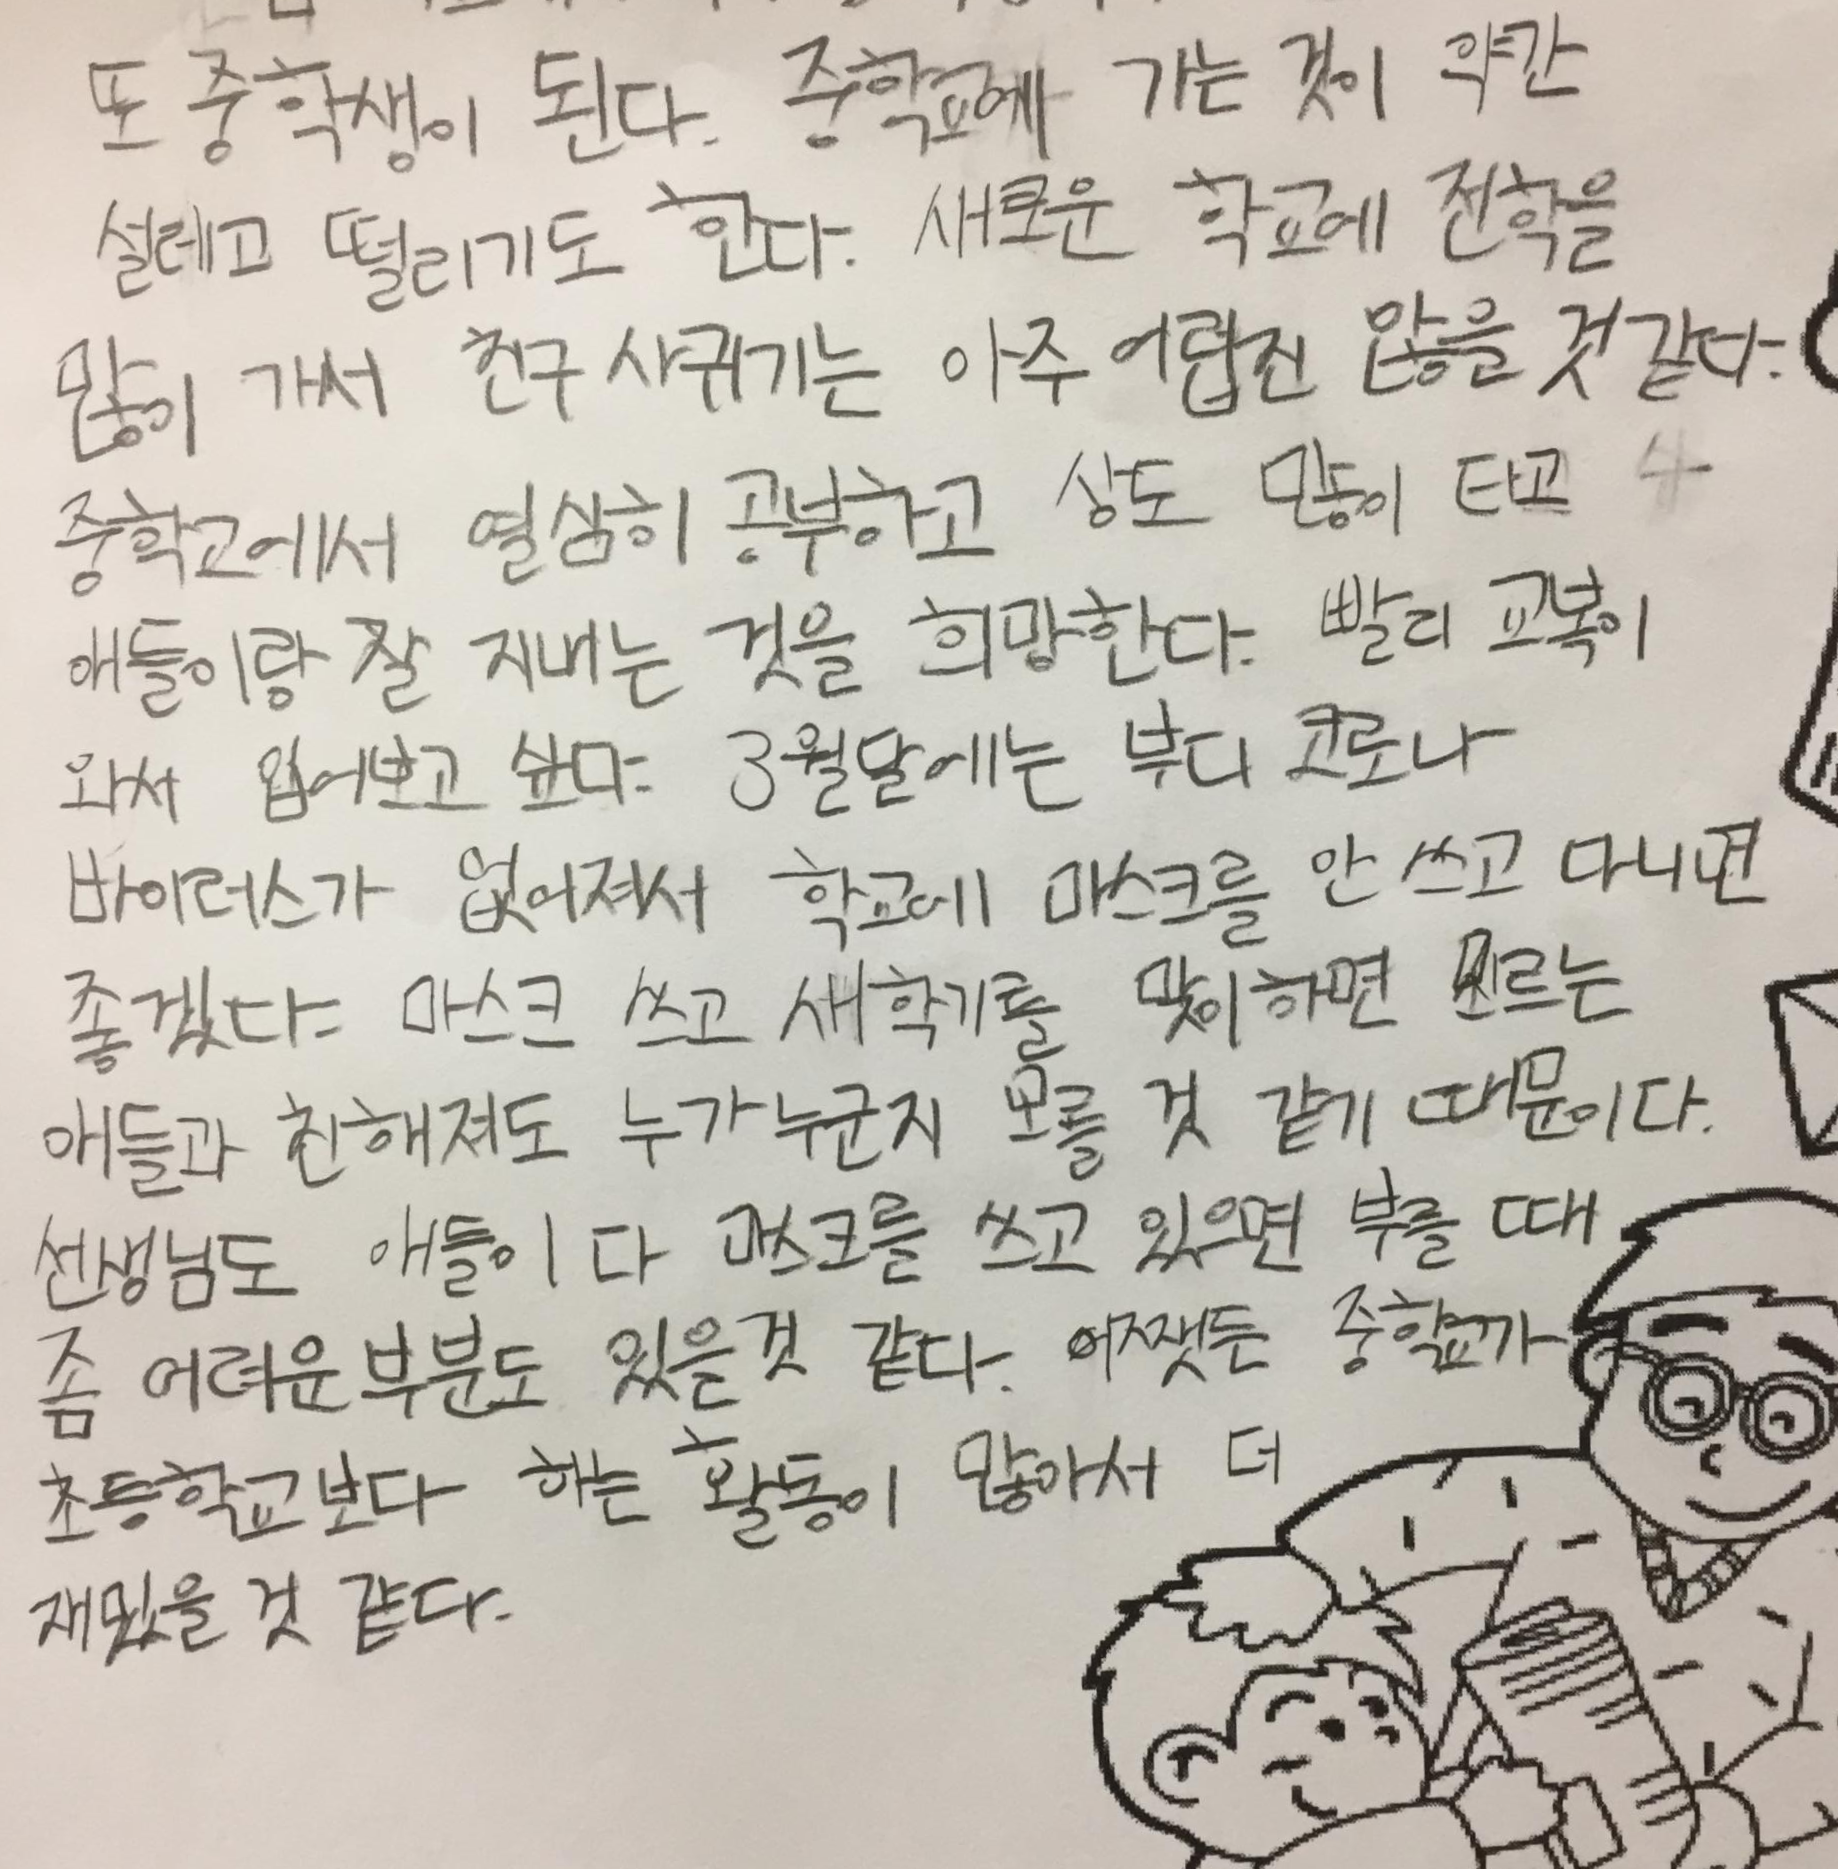 또 중학생이 된다. 중학교에 가는 것이 약간
설레고 떨리기도 한다. 새로운 학교에 전학을
많이 가서 친구 사귀기는 아주 어렵진 않을 것 같다.
중학교에서 열심히 공부하고 상도 많이 타고
애들이랑 잘 지내는 것을 희망한다. 빨리 교복이
와서 입어보고 싶다. 3월달에는 부디 코로나
바이러스가 없어져서 학교에 마스크를 안 쓰고 다니면
좋겠다. 마스크 쓰고 새학기를 맞이하면 모르는
애들과 친해져도 누가누군지 모를 것 같기 때문이다.
선생님도 애들이 다 마스크를 쓰고 있으면 부를 때
좀 어려운 부분도 있을것 같다. 어쨋든 중학교가
초등학교보다 하는 활동이 많아서 더
재밌을 것 같다.